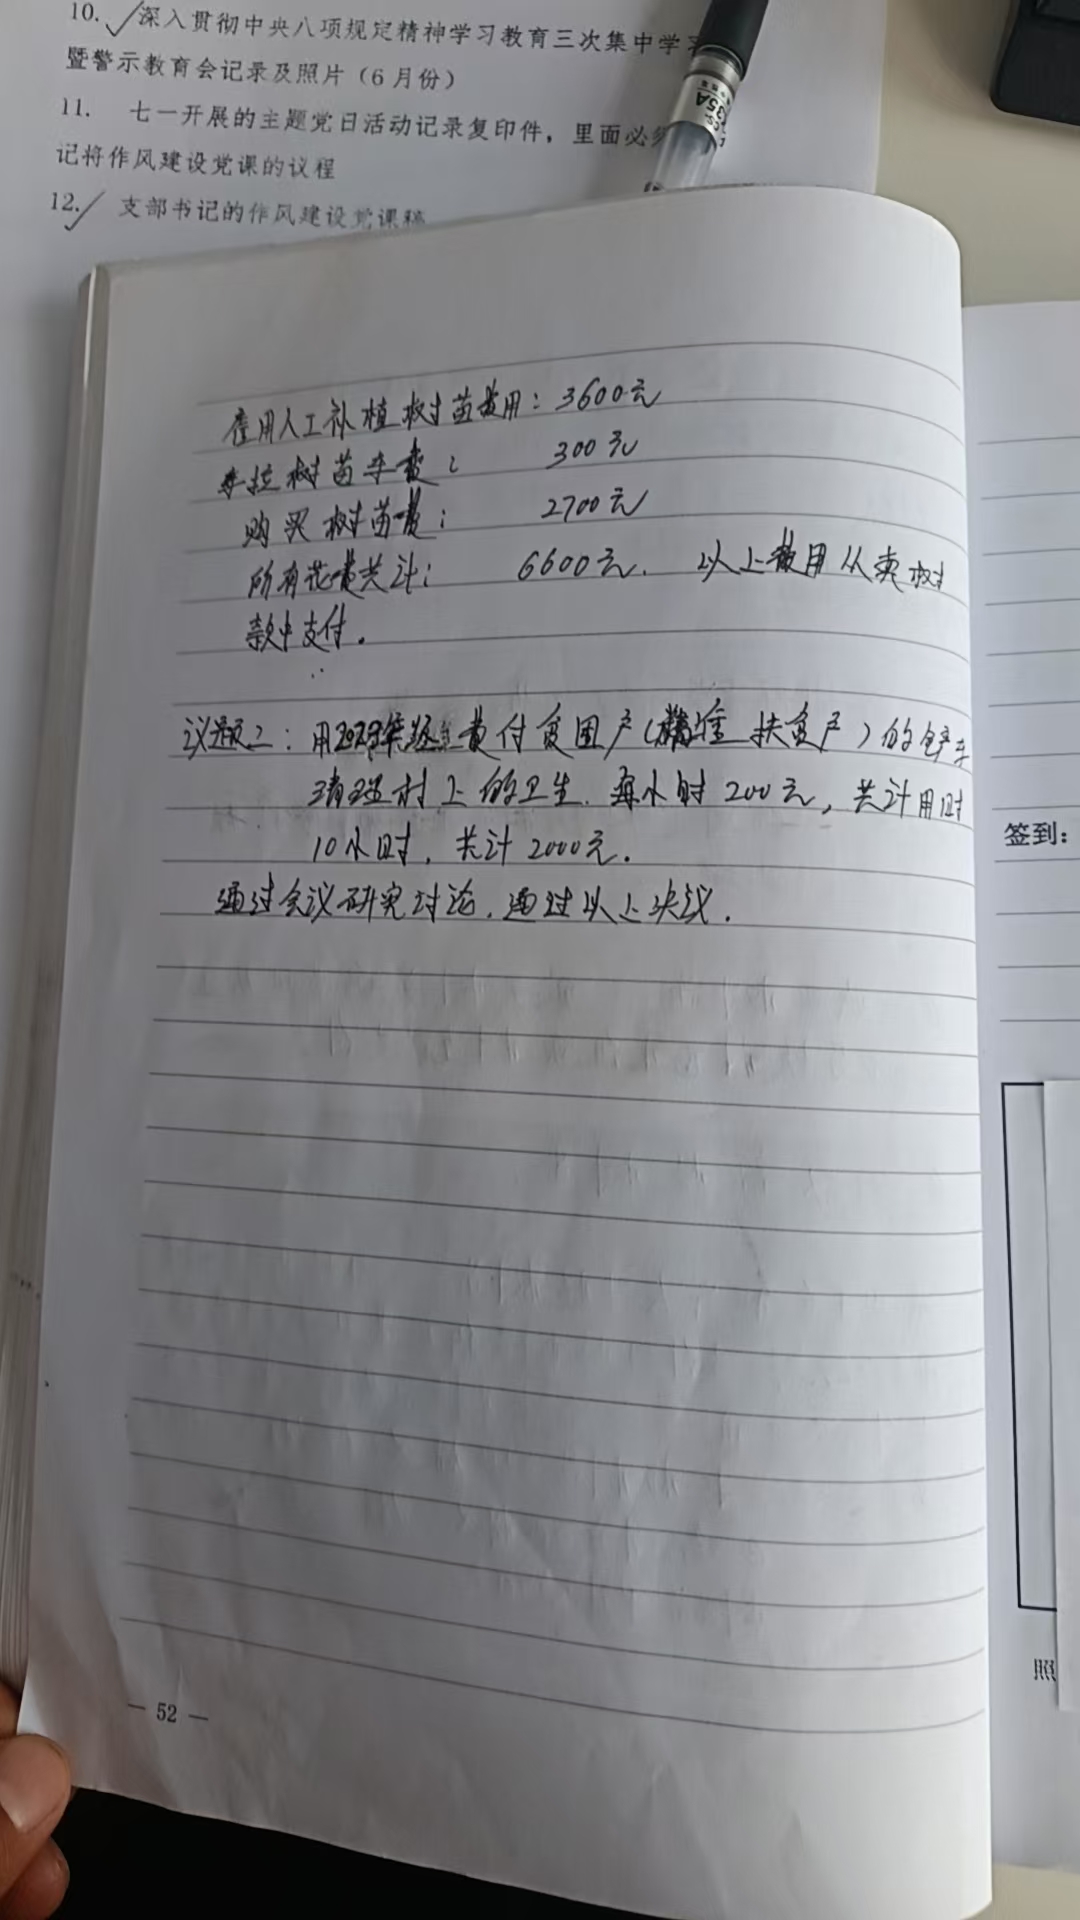 10. 深入贯彻中央八项规定精神学习教育三次集中学习
暨警示教育会记录及照片（6月份）
11. 七一开展的主题党日活动记录复印件，里面必须
记将作风建设党课的议程
12. 支部书记的作风建设党课稿
雇用人工补植树苗费用：3600元
车拉树苗车费： 300元
购买树苗费： 2700元
所有花费共计： 6600元. 以上费用从卖树
款中支付.
议题二：用2023年 费付贫困户（精准扶贫户）的铲车
清理村上的卫生. 每小时200元，共计用时
10小时，共计2000元.
通过会议研究讨论，通过以上决议.
签到：
照
— 52 —